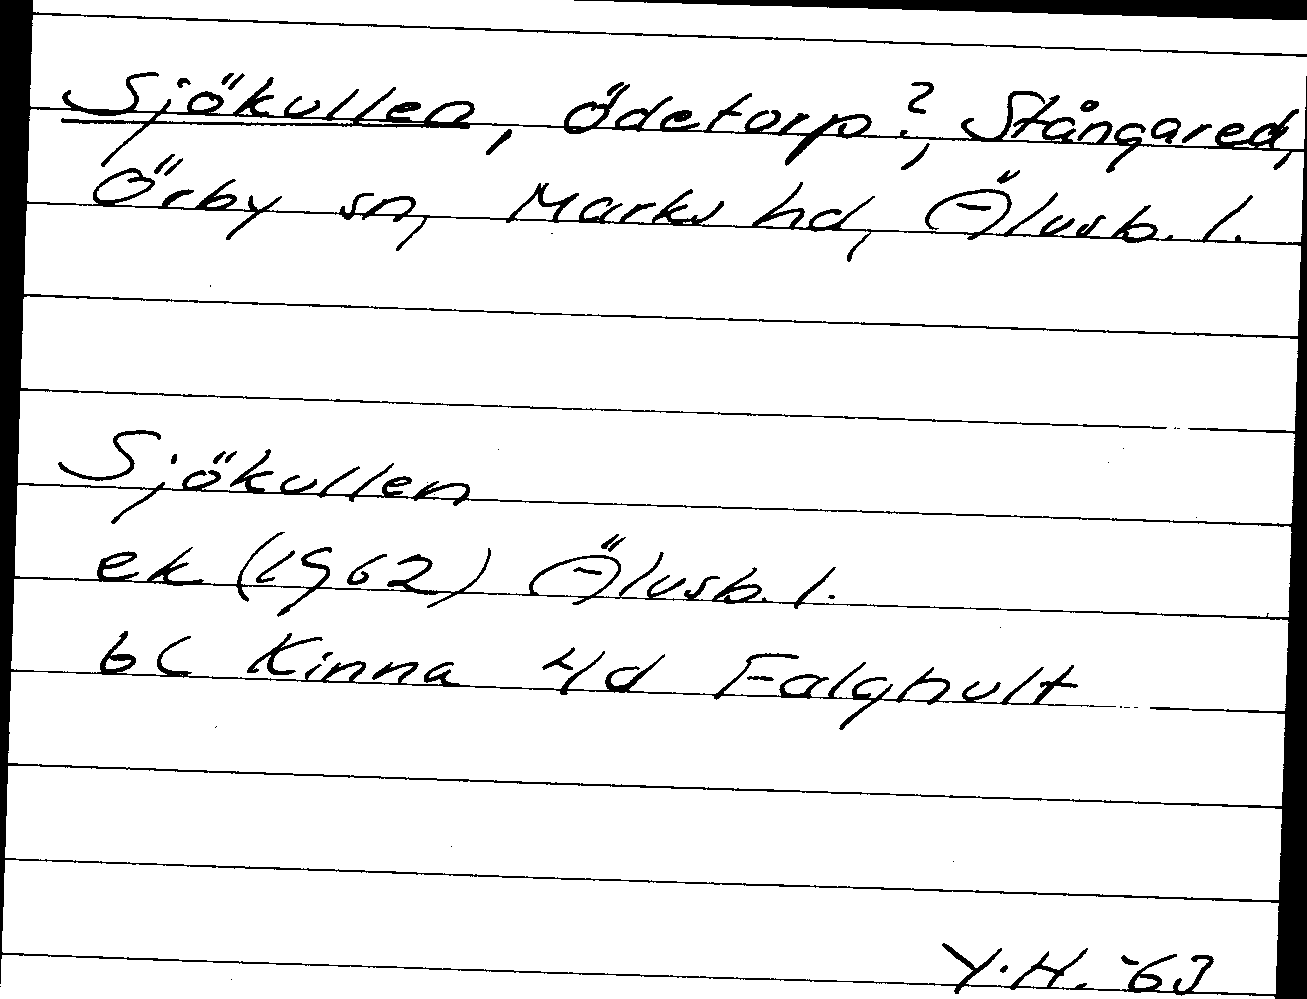 Sjökullen, ödetorp?, Stångared,
Örby sn, Marks hd, Älvsb. l.
Sjökullen
ek (1962) Älvsb. l.
6C Kinna 4/d Falghult
Y.H. -63